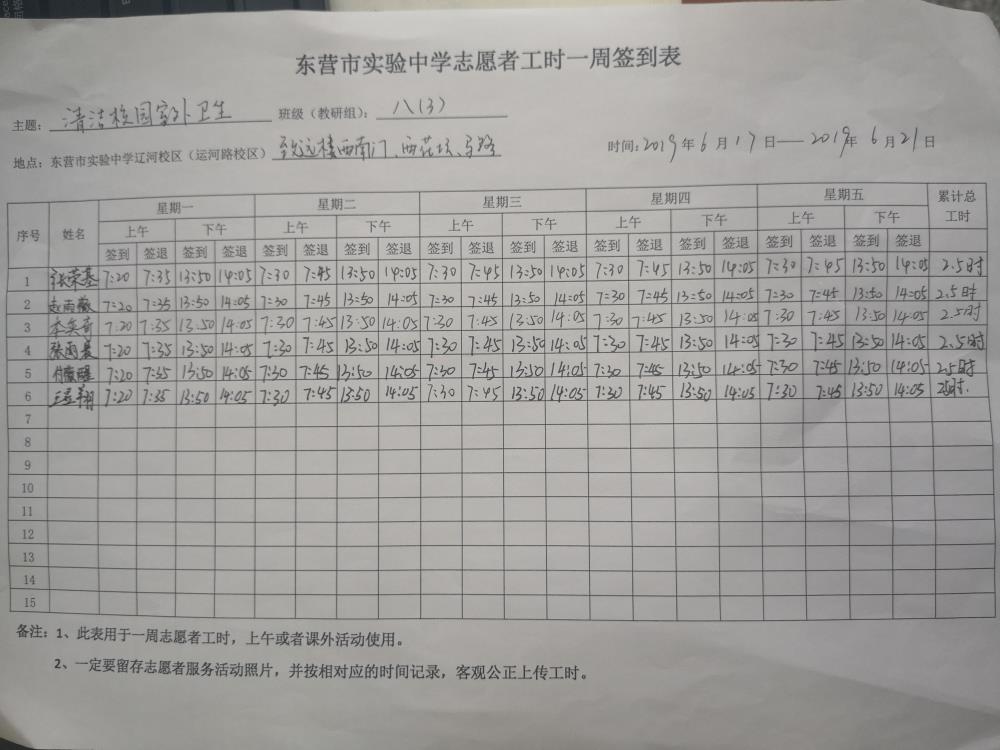 东营市实验中学志愿者工时一周签到表
主题：清洁校园室外卫生 班级（教研组）：八（3）
地点：东营市实验中学辽河校区（运河路校区）致远楼西南门、西花坛、马路 时间：2019年6月17日——2019年6月21日
序号 姓名 星期一 星期二 星期三 星期四 星期五 累计总工时
上午 下午 上午 下午 上午 下午 上午 下午 上午 下午
签到 签退 签到 签退 签到 签退 签到 签退 签到 签退 签到 签退 签到 签退 签到 签退 签到 签退 签到 签退
1 张荣基 7:20 7:35 13:50 14:05 7:30 7:45 13:50 14:05 7:30 7:45 13:50 14:05 7:30 7:45 13:50 14:05 7:30 7:45 13:50 14:05 2.5时
2 赵雨薇 7:20 7:35 13:50 14:05 7:30 7:45 13:50 14:05 7:30 7:45 13:50 14:05 7:30 7:45 13:50 14:05 7:30 7:45 13:50 14:05 2.5时
3 7:20 7:35 13:50 14:05 7:30 7:45 13:50 14:05 7:30 7:45 13:50 14:05 7:30 7:45 13:50 14:05 7:30 7:45 13:50 14:05 2.5时
4 张雨晨 7:20 7:35 13:50 14:05 7:30 7:45 13:50 14:05 7:30 7:45 13:50 14:05 7:30 7:45 13:50 14:05 7:30 7:45 13:50 14:05 2.5时
5 7:20 7:35 13:50 14:05 7:30 7:45 13:50 14:05 7:30 7:45 13:50 14:05 7:30 7:45 13:50 14:05 7:30 7:45 13:50 14:05 2.5时
6 7:20 7:35 13:50 14:05 7:30 7:45 13:50 14:05 7:30 7:45 13:50 14:05 7:30 7:45 13:50 14:05 7:30 7:45 13:50 14:05
7
8
9
10
11
12
13
14
15
备注：1、此表用于一周志愿者工时，上午或者课外活动使用。
2、一定要留存志愿者服务活动照片，并按相对应的时间记录，客观公正上传工时。